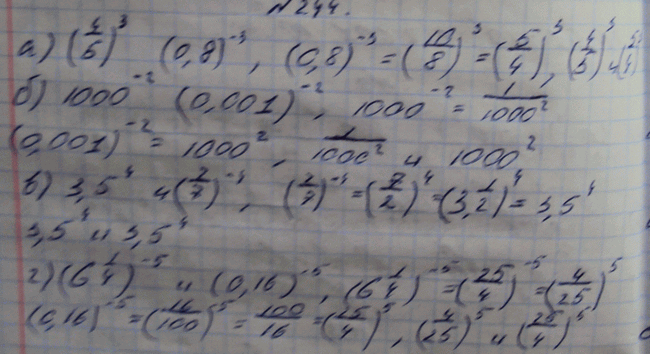 № 244.
а) (4/5)³ (0,8)⁻³, (0,8)⁻³ = (10/8)³ = (5/4)³, (4/5)³ и (5/4)³
б) 1000⁻² (0,001)⁻², 1000⁻² = 1/1000²
(0,001)⁻² = 1000², 1/1000² и 1000²
в) 3,5⁴ и (2/7)⁻⁴, (2/7)⁻⁴ = (7/2)⁴ = (3,1/2)⁴ = 3,5⁴
3,5⁴ и 3,5⁴
г) (6 1/4)⁻⁵ и (0,16)⁻⁵, (6 1/4)⁻⁵ = (25/4)⁻⁵ = (4/25)⁵
(0,16)⁻⁵ = (16/100)⁵ = 100/16 = (25/4)⁵, (4/25)⁵ и (25/4)⁵